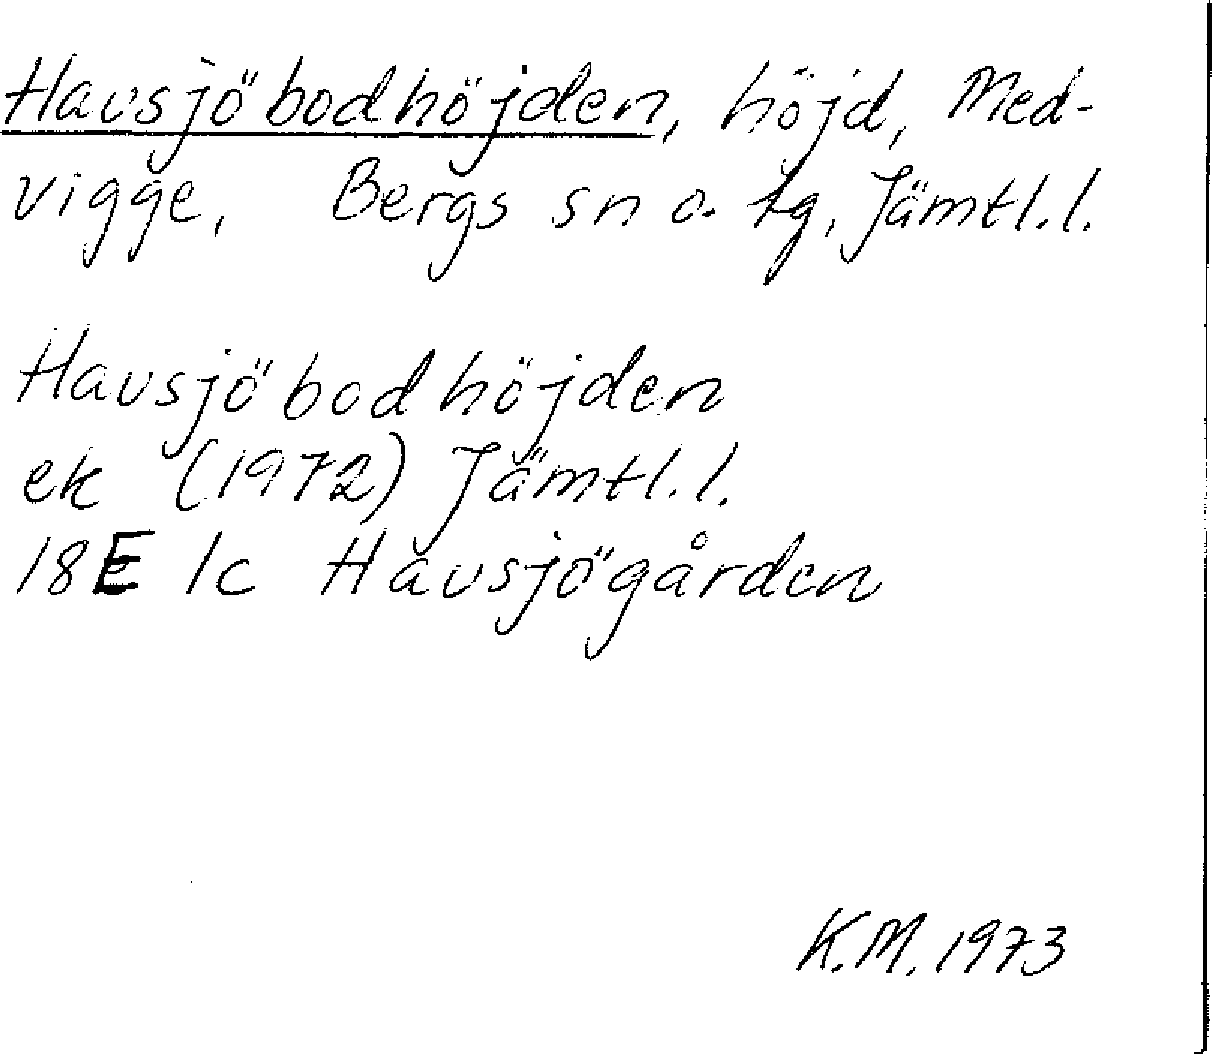 Havsjöbodhöjden, höjd, Med-
vigge, Bergs sn o. tg, Jämtl.l.
Havsjöbodhöjden
ek (1972) Jämtl.l.
18E 1c Håvsjögården
K.M. 1973